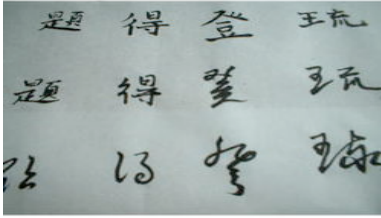 題 得 登 琉
題 得 登 琉
題 得 登